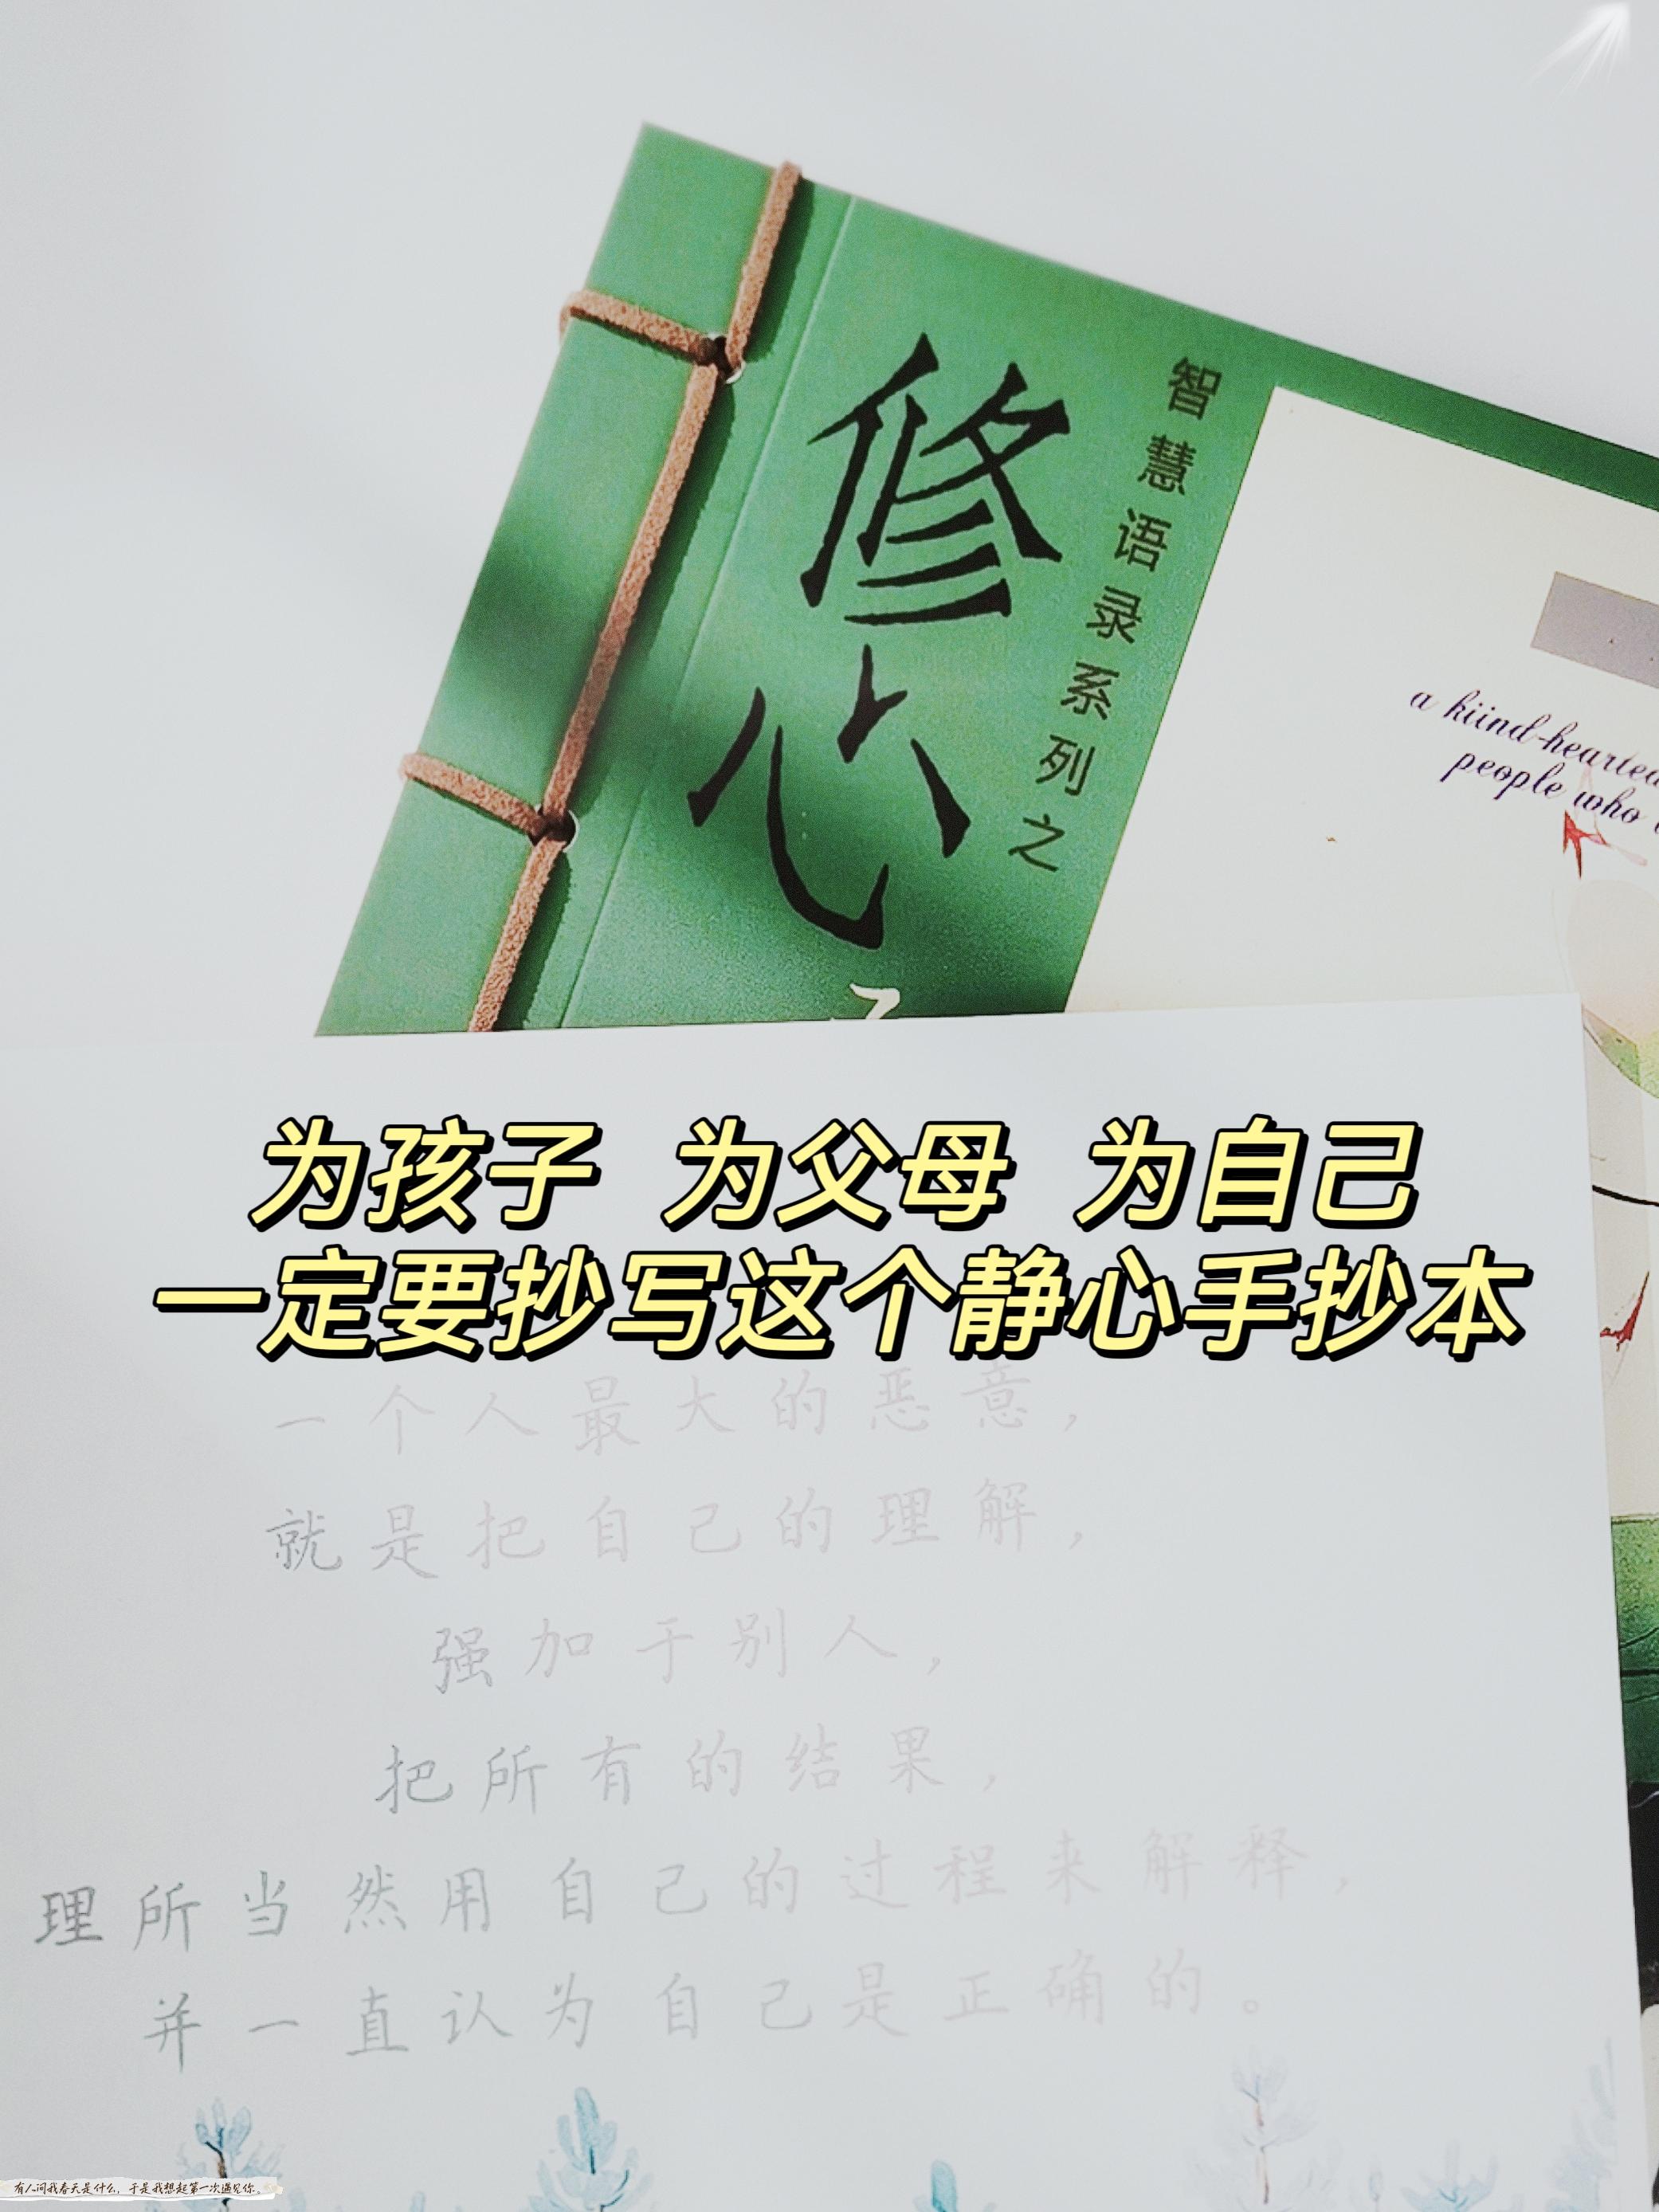 智慧语录系列之
修心
a kiind-hearted
people who
为孩子 为父母 为自己
一定要抄写这个静心手抄本
一个人最大的恶意，
就是把自己的理解，
强加于别人，
把所有的结果，
理所当然用自己的过程来解释，
并一直认为自己是正确的。
有人问我春天是什么，于是我想起第一次遇见你。